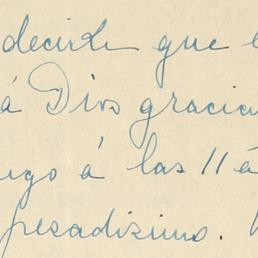 decirle que
á Dios gracia
á las 11 á
pesadizimo.